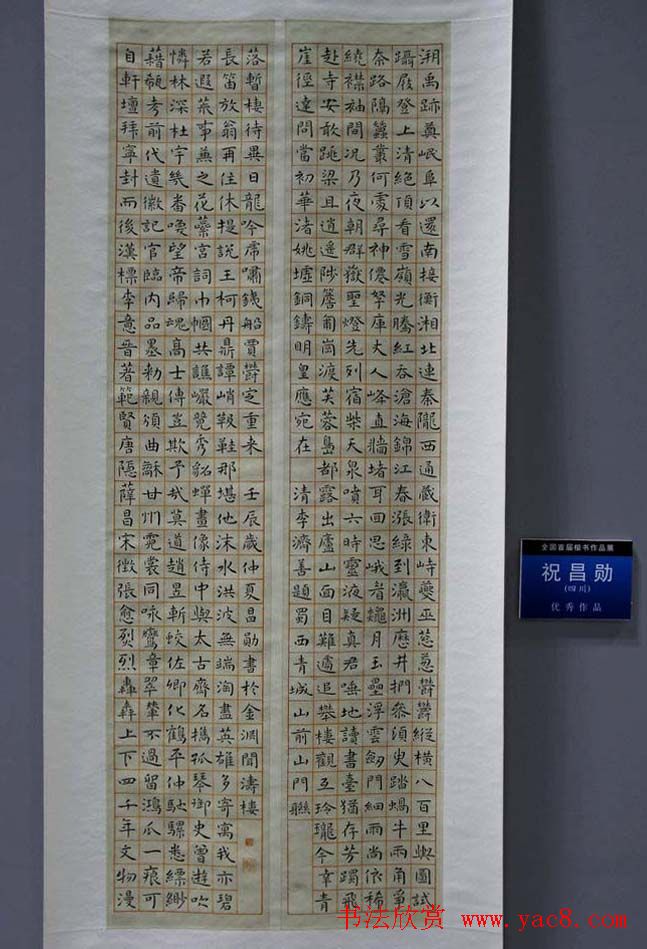 溯禹跡奠岷阜以還南接衡湘北連秦隴西通藏衛東峙夔巫葱葱鬱鬱縱橫八百里輿圖試
躡屐登上清絕頂看雪嶺光騰紅吞滄海錦江春漲綠到瀛洲歷井捫參須臾踏蝸牛兩角爭
奈路隔蠶叢何處尋神僊帑庫丈人峰直牆堵耳回思峨者巍月玉壘浮雲劒門細雨尚依稀
繞襟袖間況乃夜朝群嶽聖燈先列宿柴天泉噴六時靈液疑真君唾地讀書臺猶存芳躅飛
赴寺安敢跳梁且逍遙陟簷蔔崗渡芙蓉島都露出廬山面目難遽追攀樓觀互玲瓏今幸青
崖徑達問當初華渚姚墟銅鑄明皇應宛在 清李濟善題蜀西青城山前山門聯
自軒壇拜寧封而後漢標李意晉著範賢唐隱薛昌宋徵張愈烈烈轟轟上下四千年文物漫
藉瓻考前代遺徽記官臨内品墨勅親頒曲穌甘州霓裳同咏鸞章翠輦不過留鴻爪一痕可
憐林深杜宇幾番喚望帝歸魂高士傳豈欺予哉莫道趙昱斬蛟佐卿化鶴平仲馳騾悉縹緲
若遐萊事蕪之花蘂宮詞巾幗共譙巖競秀貂蟬畫像侍中與太古齊名攜孤琴御史曾遊吹
長笛放翁再住休提說王柯丹鼎譚峭靸鞋那堪他沫水洪波無端淘盡英雄多寄寓我亦碧
落暫棲待異日龍吟虎嘯鐵船賈鬱定重來 壬辰歲仲夏昌勛書於金澗聞濤樓
全国首届楷书作品展
祝昌勋
(四川)
优秀作品
书法欣赏 www.yac8.com